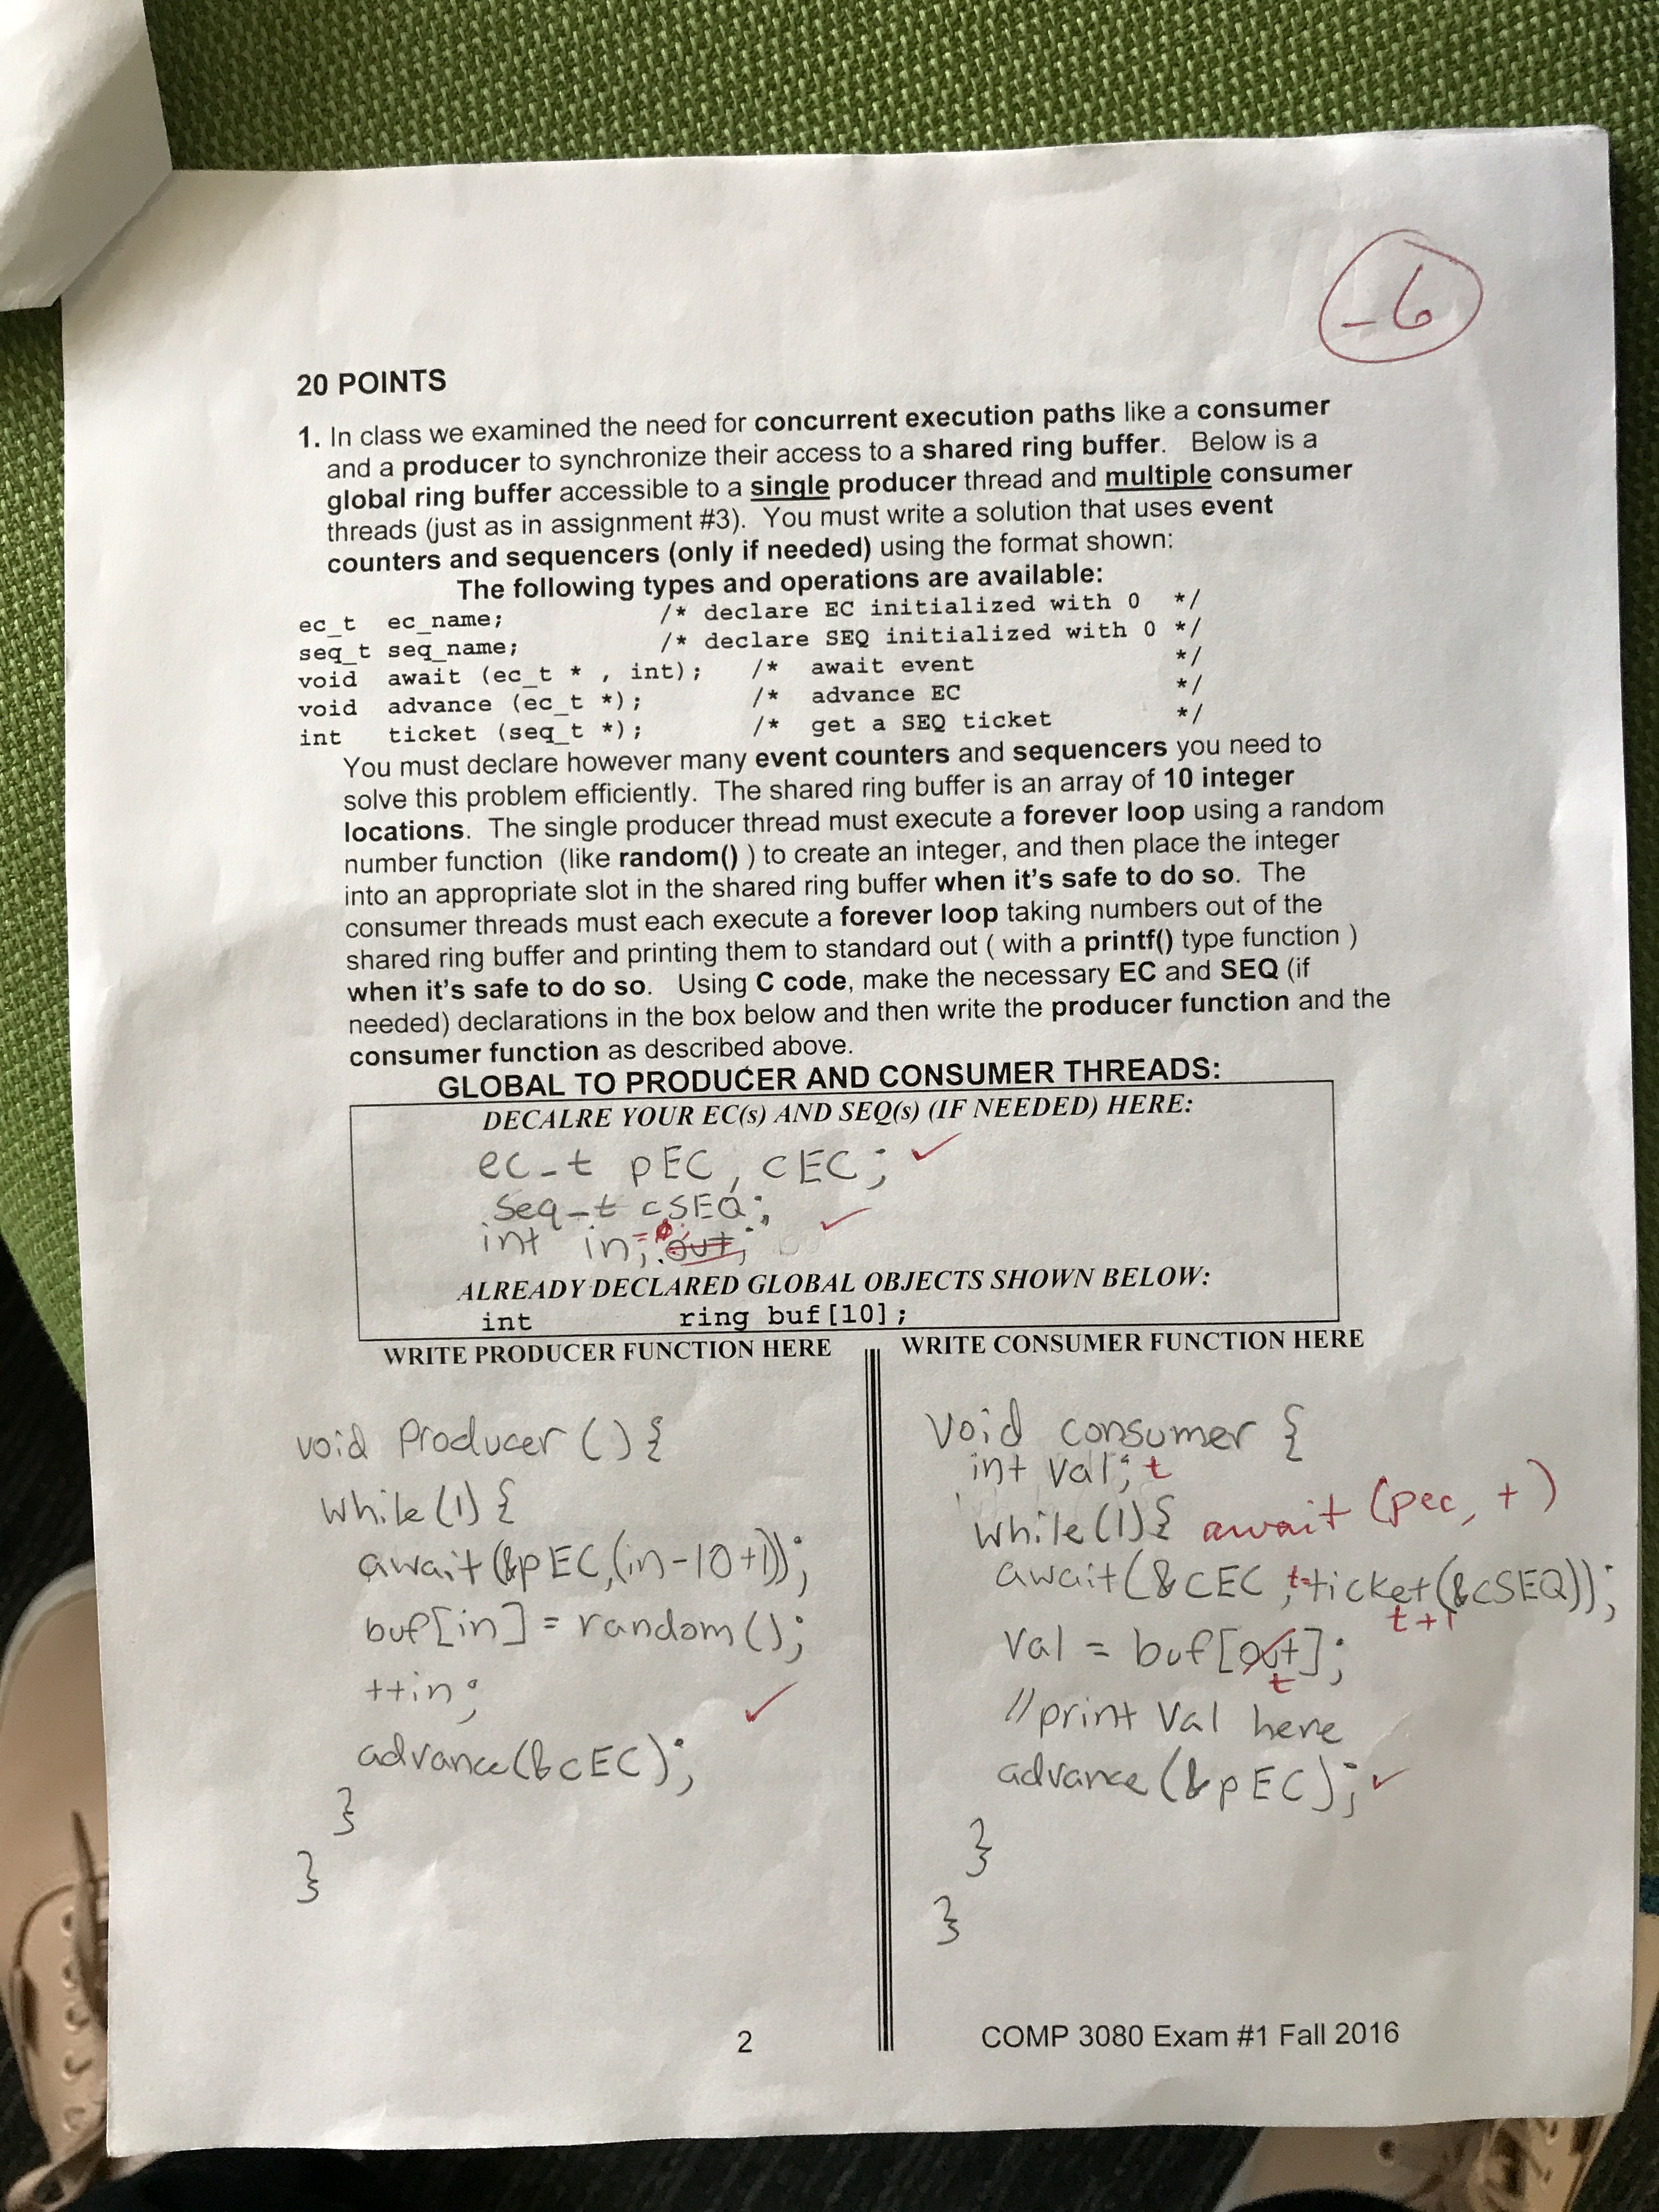 -6
20 POINTS
1. In class we examined the need for concurrent execution paths like a consumer
and a producer to synchronize their access to a shared ring buffer. Below is a
global ring buffer accessible to a single producer thread and multiple consumer
threads (just as in assignment #3). You must write a solution that uses event
counters and sequencers (only if needed) using the format shown:
The following types and operations are available:
ec_t ec_name; /* declare EC initialized with 0 */
seq_t seq_name; /* declare SEQ initialized with 0 */
void await (ec_t * , int); /* await event */
void advance (ec_t *); /* advance EC */
int ticket (seq_t *); /* get a SEQ ticket */
You must declare however many event counters and sequencers you need to
solve this problem efficiently. The shared ring buffer is an array of 10 integer
locations. The single producer thread must execute a forever loop using a random
number function (like random() ) to create an integer, and then place the integer
into an appropriate slot in the shared ring buffer when it's safe to do so. The
consumer threads must each execute a forever loop taking numbers out of the
shared ring buffer and printing them to standard out ( with a printf() type function )
when it's safe to do so. Using C code, make the necessary EC and SEQ (if
needed) declarations in the box below and then write the producer function and the
consumer function as described above.
GLOBAL TO PRODUCER AND CONSUMER THREADS:
DECALRE YOUR EC(s) AND SEQ(s) (IF NEEDED) HERE:
ec_t pEC, cEC; ✓
seq_t cSEQ;
int in; =0 out; ✓
ALREADY DECLARED GLOBAL OBJECTS SHOWN BELOW:
int ring buf[10];
WRITE PRODUCER FUNCTION HERE
void Producer () {
while(1) {
await(&pEC,(in-10+1));
buf[in] = random();
++in;
✓
advance(&cEC);
}
}
WRITE CONSUMER FUNCTION HERE
void consumer {
int val; t
while(1){ await (pec, t)
await(&cEC, t=ticket(&cSEQ));
t+1
val = buf[out];
t
//print val here
advance(&pEC); ✓
}
}
2
COMP 3080 Exam #1 Fall 2016